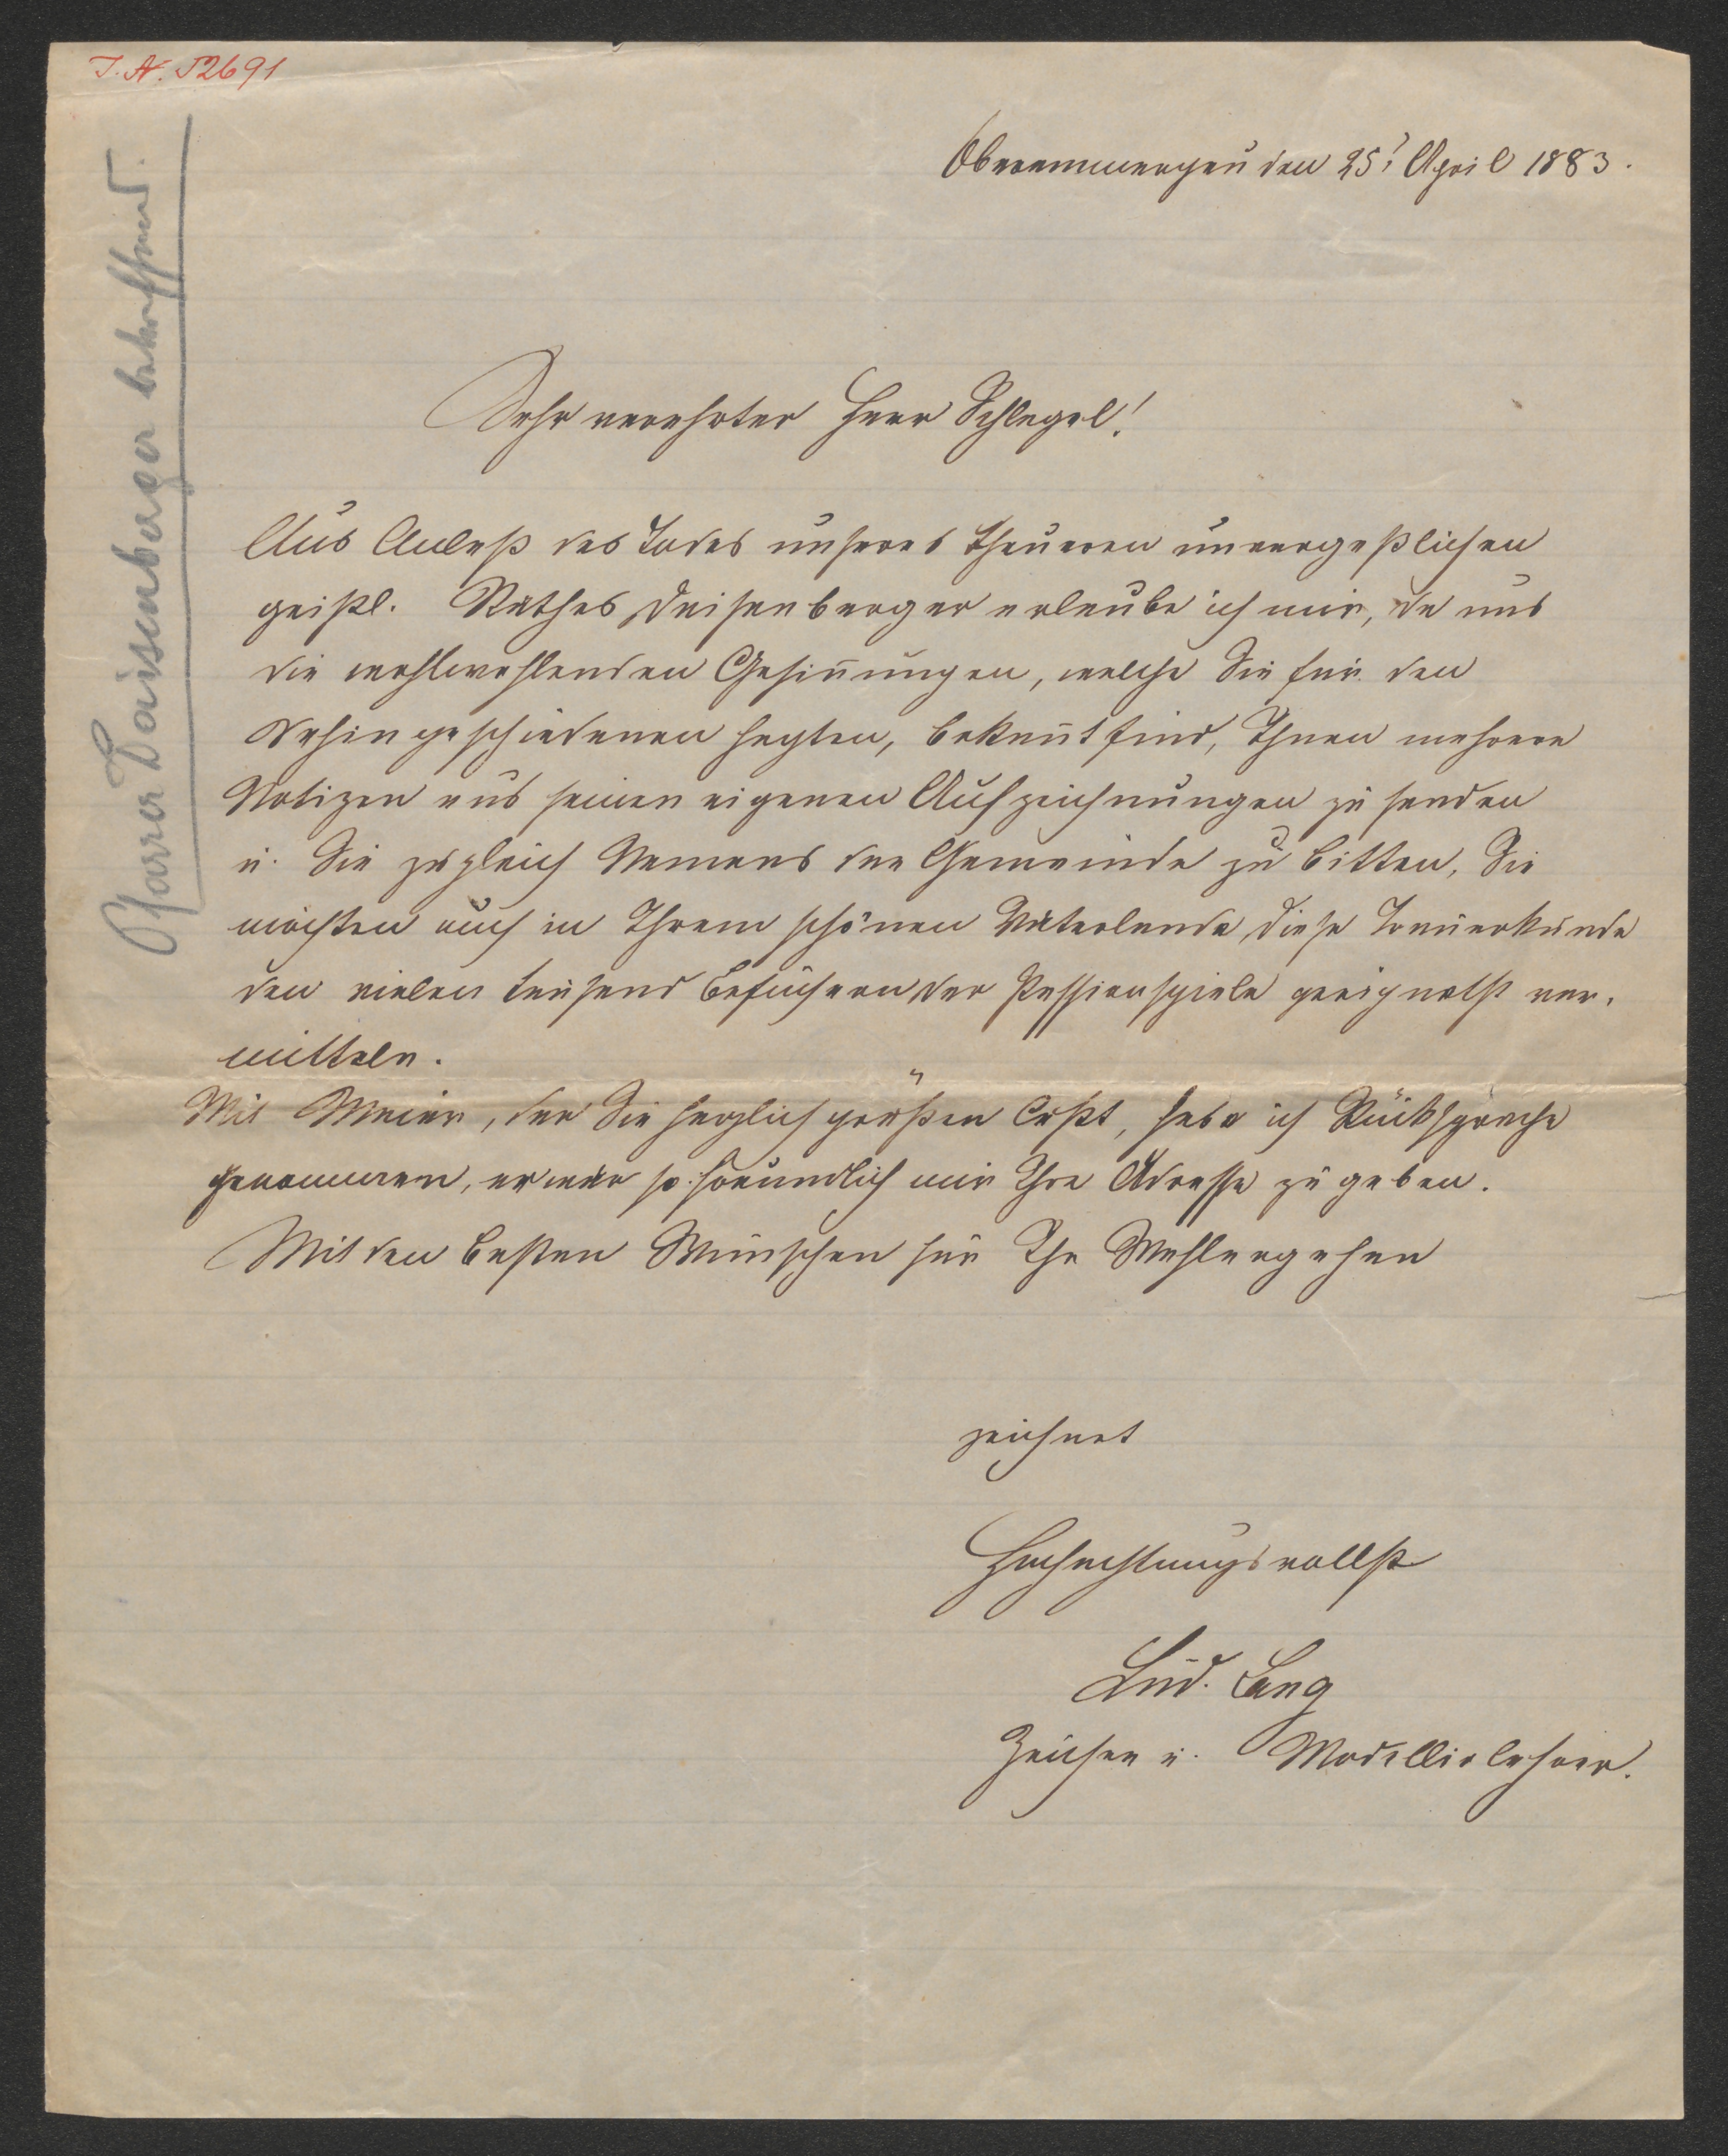 I. N. 52691
Pfarrer Daisenberger betreffend.
Oberammergau den 25t April 1883.
Sehr verehrter Herr Schlegel!
Aus Anlaß des Todes unseres theueren unvergeßlichen
geistl. Rathes Daisenberger erlaube ich mir, da uns
die wohlwohlenden Gesinnungen, welche Sie für den
Dahingeschiedenen hegten, bekannt sind, Ihnen mehrere
Notizen aus seinen eigenen Aufzeichnungen zu senden
u. Sie zugleich Namens der Gemeinde zu bitten, Sie
möchten auch in Ihrem schönen Vaterlande diese Trauerkunde
den vielen tausend Besuchern der Passionsspiele geeignetst ver-
mitteln.
Mit Meier, der Sie herzlich grüßen läßt, habe ich Rücksprache
genommen, er war so freundlich mir Ihre Adresse zu geben.
Mit den besten Wünschen für Ihr Wohlergehen
zeichnet
Hochachtungsvollst
Lud. Lang
Zeichen u. Modellirlehrer.